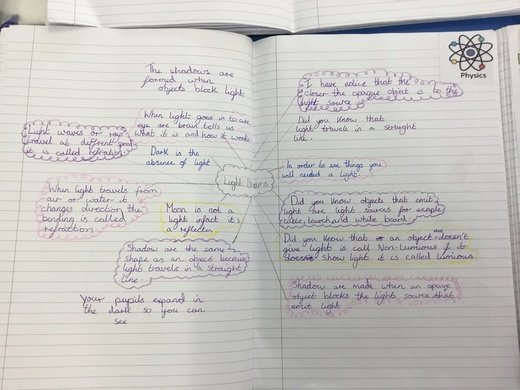 The shadows are
formed when
objects block light
When light goes in to are
eye are brain tells us
what it is and how it works.
Light waves or rays
travel at different speed
it is called refraction
Dark is the
absence of light
When light travels from
air or water it
changes direction the
bending is called
refraction
Moon is not a
light infact it's
a reflector
Shadow are the same
shape as an object because
light travels in a straight
line.
Your pupils expand in
the dark so you can
see
Light
Physics
I have notice that the
closer the opaque object is to the
light source
Did you know that
light travels in a straight
In order to see things you
will needed a light
Did you know objects that emit
light are light sources for exaple
touch and white board
Did you know that an object doesn't
give light is call Non-luminous if it
show light it is called lumious.
Shadow are made when an opaqe
object blocks the light source that
emit light